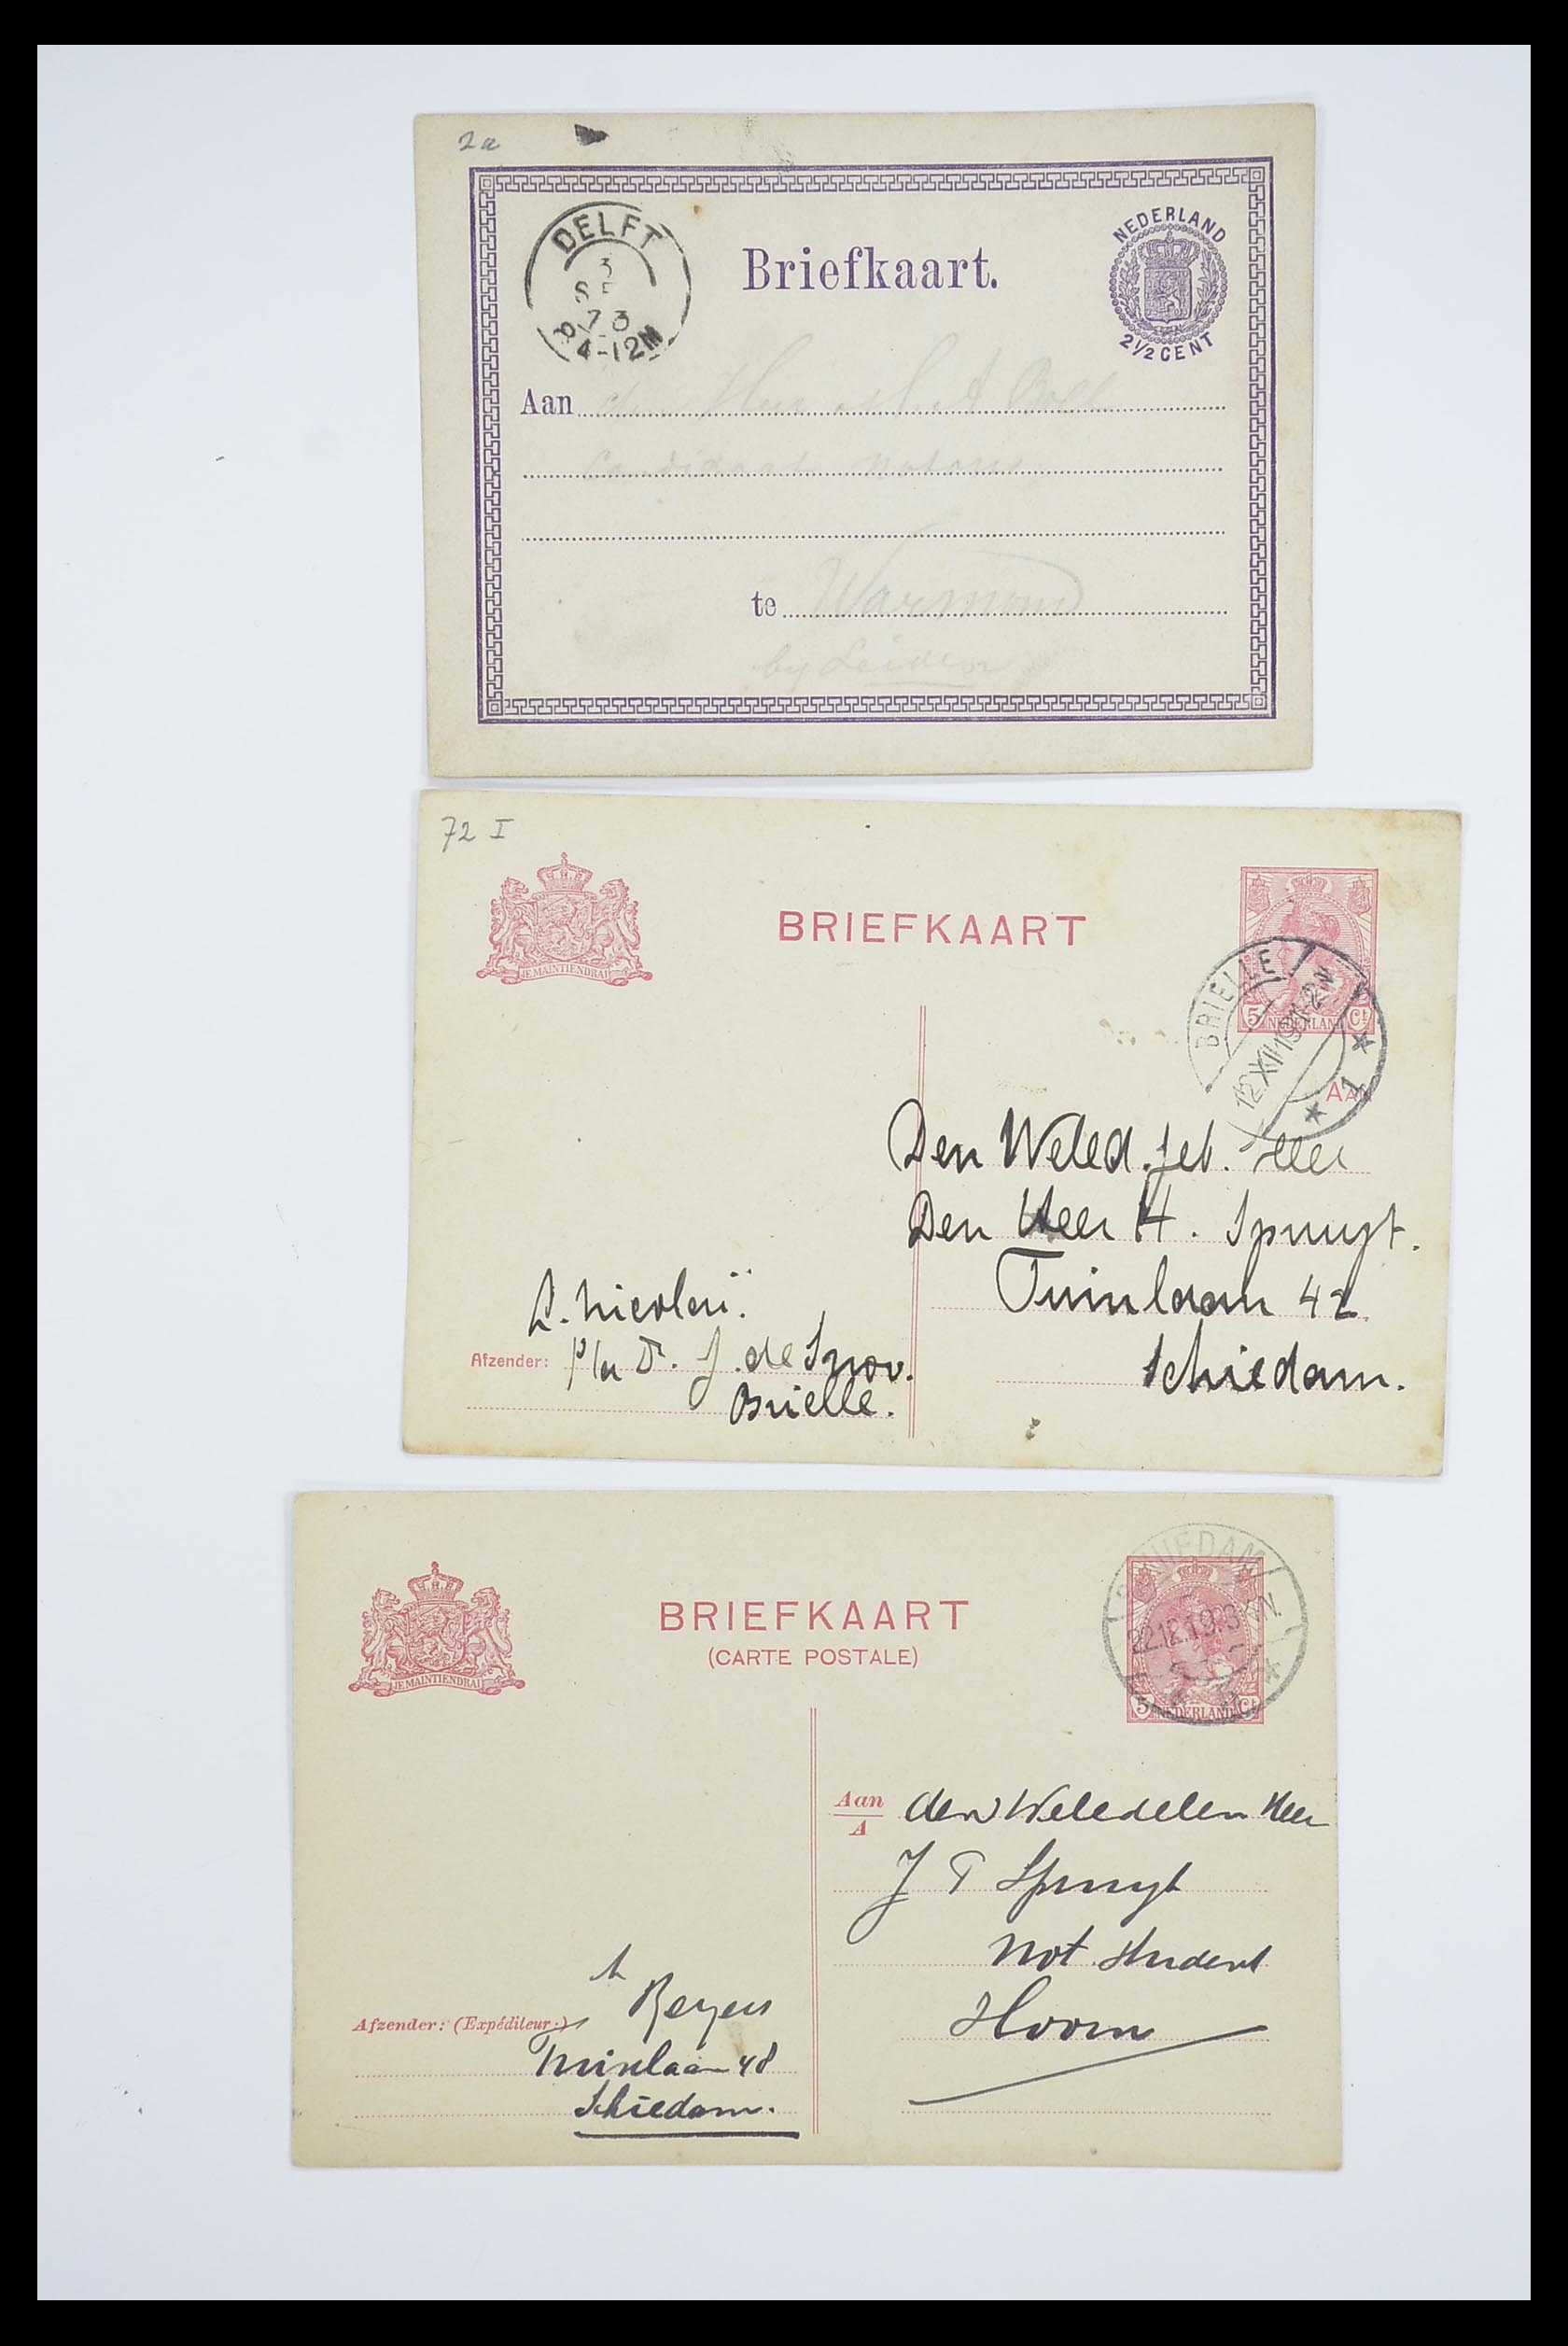 2a
DELFT
3
73
8
4-12M
Briefkaart.
NEDERLAND
2½ CENT
Aan
te Warmond
by Leiden
72 I
JE MAINTIENDRAI
BRIEFKAART
5 NEDERLAND Ct
BRIELLE
12 XII
1
AAN
Den Weled. Geb. Heer
Den Heer H. Spruyt.
Tuinlaan 42
Schiedam.
Afzender:
J. de
Brielle.
JE MAINTIENDRAI
BRIEFKAART
(CARTE POSTALE)
SCHIEDAM
22.12.19
5 NEDERLAND Ct
Aan
A
den Weledelen Heer
J P Spruyt
Not. Student
Hoorn
Afzender: (Expéditeur:)
Tuinlaan 48
Schiedam.